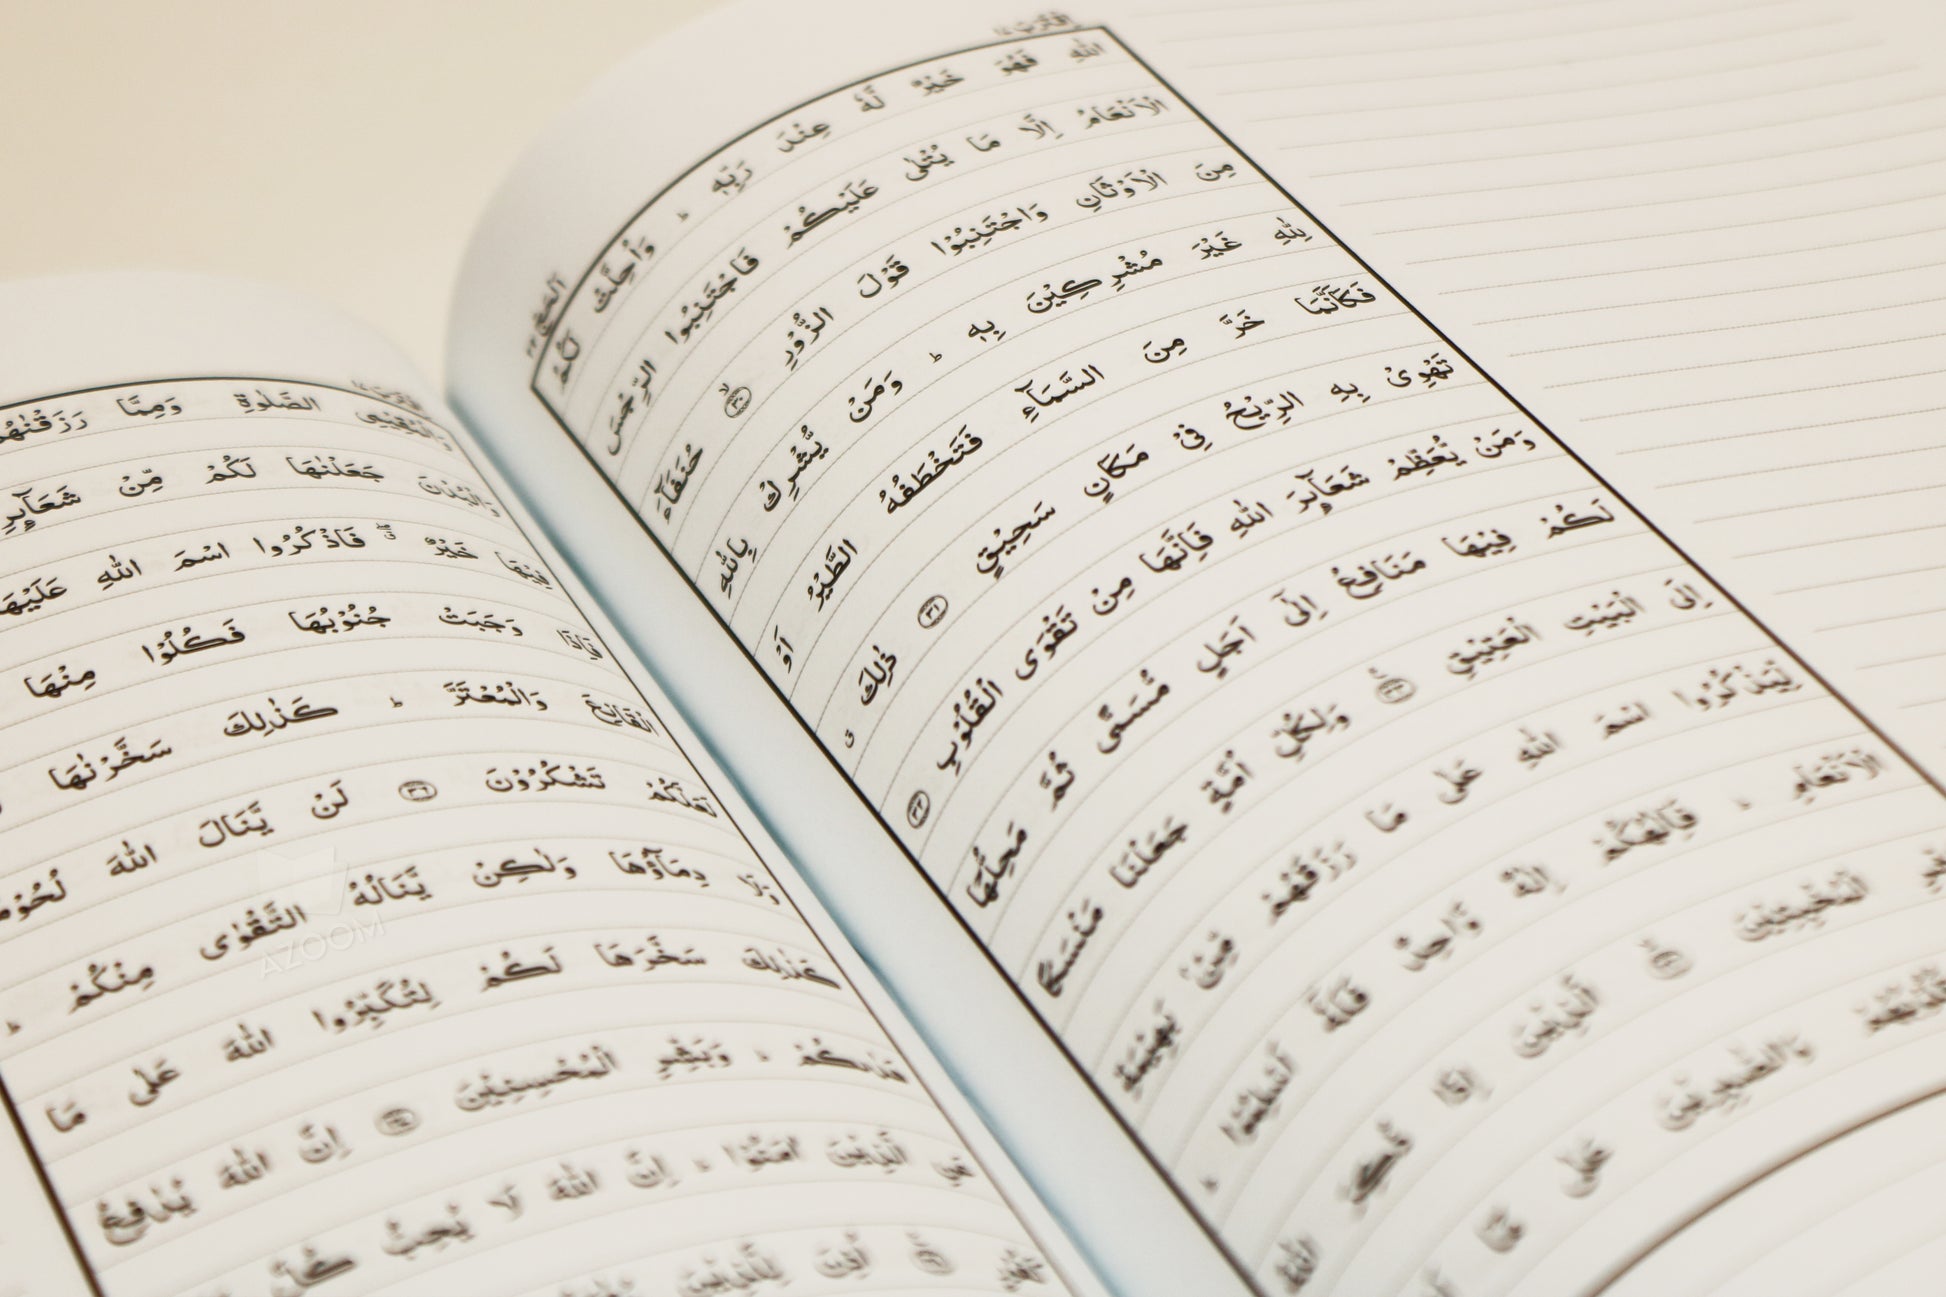 اقترب ١٧
الحج ٢٢
اللّٰهِ فَهُوَ خَيْرٌ لَّهٗ عِنْدَ رَبِّهٖ ؕ وَاُحِلَّتْ لَكُمُ
الْاَنْعَامُ اِلَّا مَا يُتْلٰى عَلَيْكُمْ فَاجْتَنِبُوا الرِّجْسَ
مِنَ الْاَوْثَانِ وَاجْتَنِبُوْا قَوْلَ الزُّوْرِ ۙ ٣٠ حُنَفَآءَ
لِلّٰهِ غَيْرَ مُشْرِكِيْنَ بِهٖ ؕ وَمَنْ يُّشْرِكْ بِاللّٰهِ
فَكَاَنَّمَا خَرَّ مِنَ السَّمَآءِ فَتَخْطَفُهُ الطَّيْرُ اَوْ
تَهْوِيْ بِهِ الرِّيْحُ فِيْ مَكَانٍ سَحِيْقٍ ٣١ ذٰلِكَ ق
وَمَنْ يُّعَظِّمْ شَعَآئِرَ اللّٰهِ فَاِنَّهَا مِنْ تَقْوَى الْقُلُوْبِ ٣٢
لَكُمْ فِيْهَا مَنَافِعُ اِلٰٓى اَجَلٍ مُّسَمًّى ثُمَّ مَحِلُّهَآ
اِلَى الْبَيْتِ الْعَتِيْقِ ٣٣ وَلِكُلِّ اُمَّةٍ جَعَلْنَا مَنْسَكًا
لِّيَذْكُرُوا اسْمَ اللّٰهِ عَلٰى مَا رَزَقَهُمْ مِّنْۢ بَهِيْمَةِ
الْاَنْعَامِ ؕ فَاِلٰهُكُمْ اِلٰهٌ وَّاحِدٌ فَلَهٗٓ اَسْلِمُوْا ؕ
الْمُخْبِتِيْنَ ٣٤ الَّذِيْنَ اِذَا ذُكِرَ اللّٰهُ
قُلُوْبُهُمْ وَالصّٰبِرِيْنَ عَلٰى مَآ
وَالْمُقِيْمِي الصَّلٰوةِ وَمِمَّا رَزَقْنٰهُمْ
وَالْبُدْنَ جَعَلْنٰهَا لَكُمْ مِّنْ شَعَآئِرِ
فِيْهَا خَيْرٌ ۖ فَاذْكُرُوا اسْمَ اللّٰهِ عَلَيْهَا
فَاِذَا وَجَبَتْ جُنُوْبُهَا فَكُلُوْا مِنْهَا
الْقَانِعَ وَالْمُعْتَرَّ ؕ كَذٰلِكَ سَخَّرْنٰهَا
لَعَلَّكُمْ تَشْكُرُوْنَ ٣٦ لَنْ يَّنَالَ اللّٰهَ لُحُوْمُهَا
وَلَا دِمَآؤُهَا وَلٰكِنْ يَّنَالُهُ التَّقْوٰى مِنْكُمْ ؕ
كَذٰلِكَ سَخَّرَهَا لَكُمْ لِتُكَبِّرُوا اللّٰهَ عَلٰى مَا
هَدٰىكُمْ ؕ وَبَشِّرِ الْمُحْسِنِيْنَ ٣٧ اِنَّ اللّٰهَ يُدٰفِعُ
عَنِ الَّذِيْنَ اٰمَنُوْا ؕ اِنَّ اللّٰهَ لَا يُحِبُّ كُلَّ
اُذِنَ لِلَّذِيْنَ
AZOOM